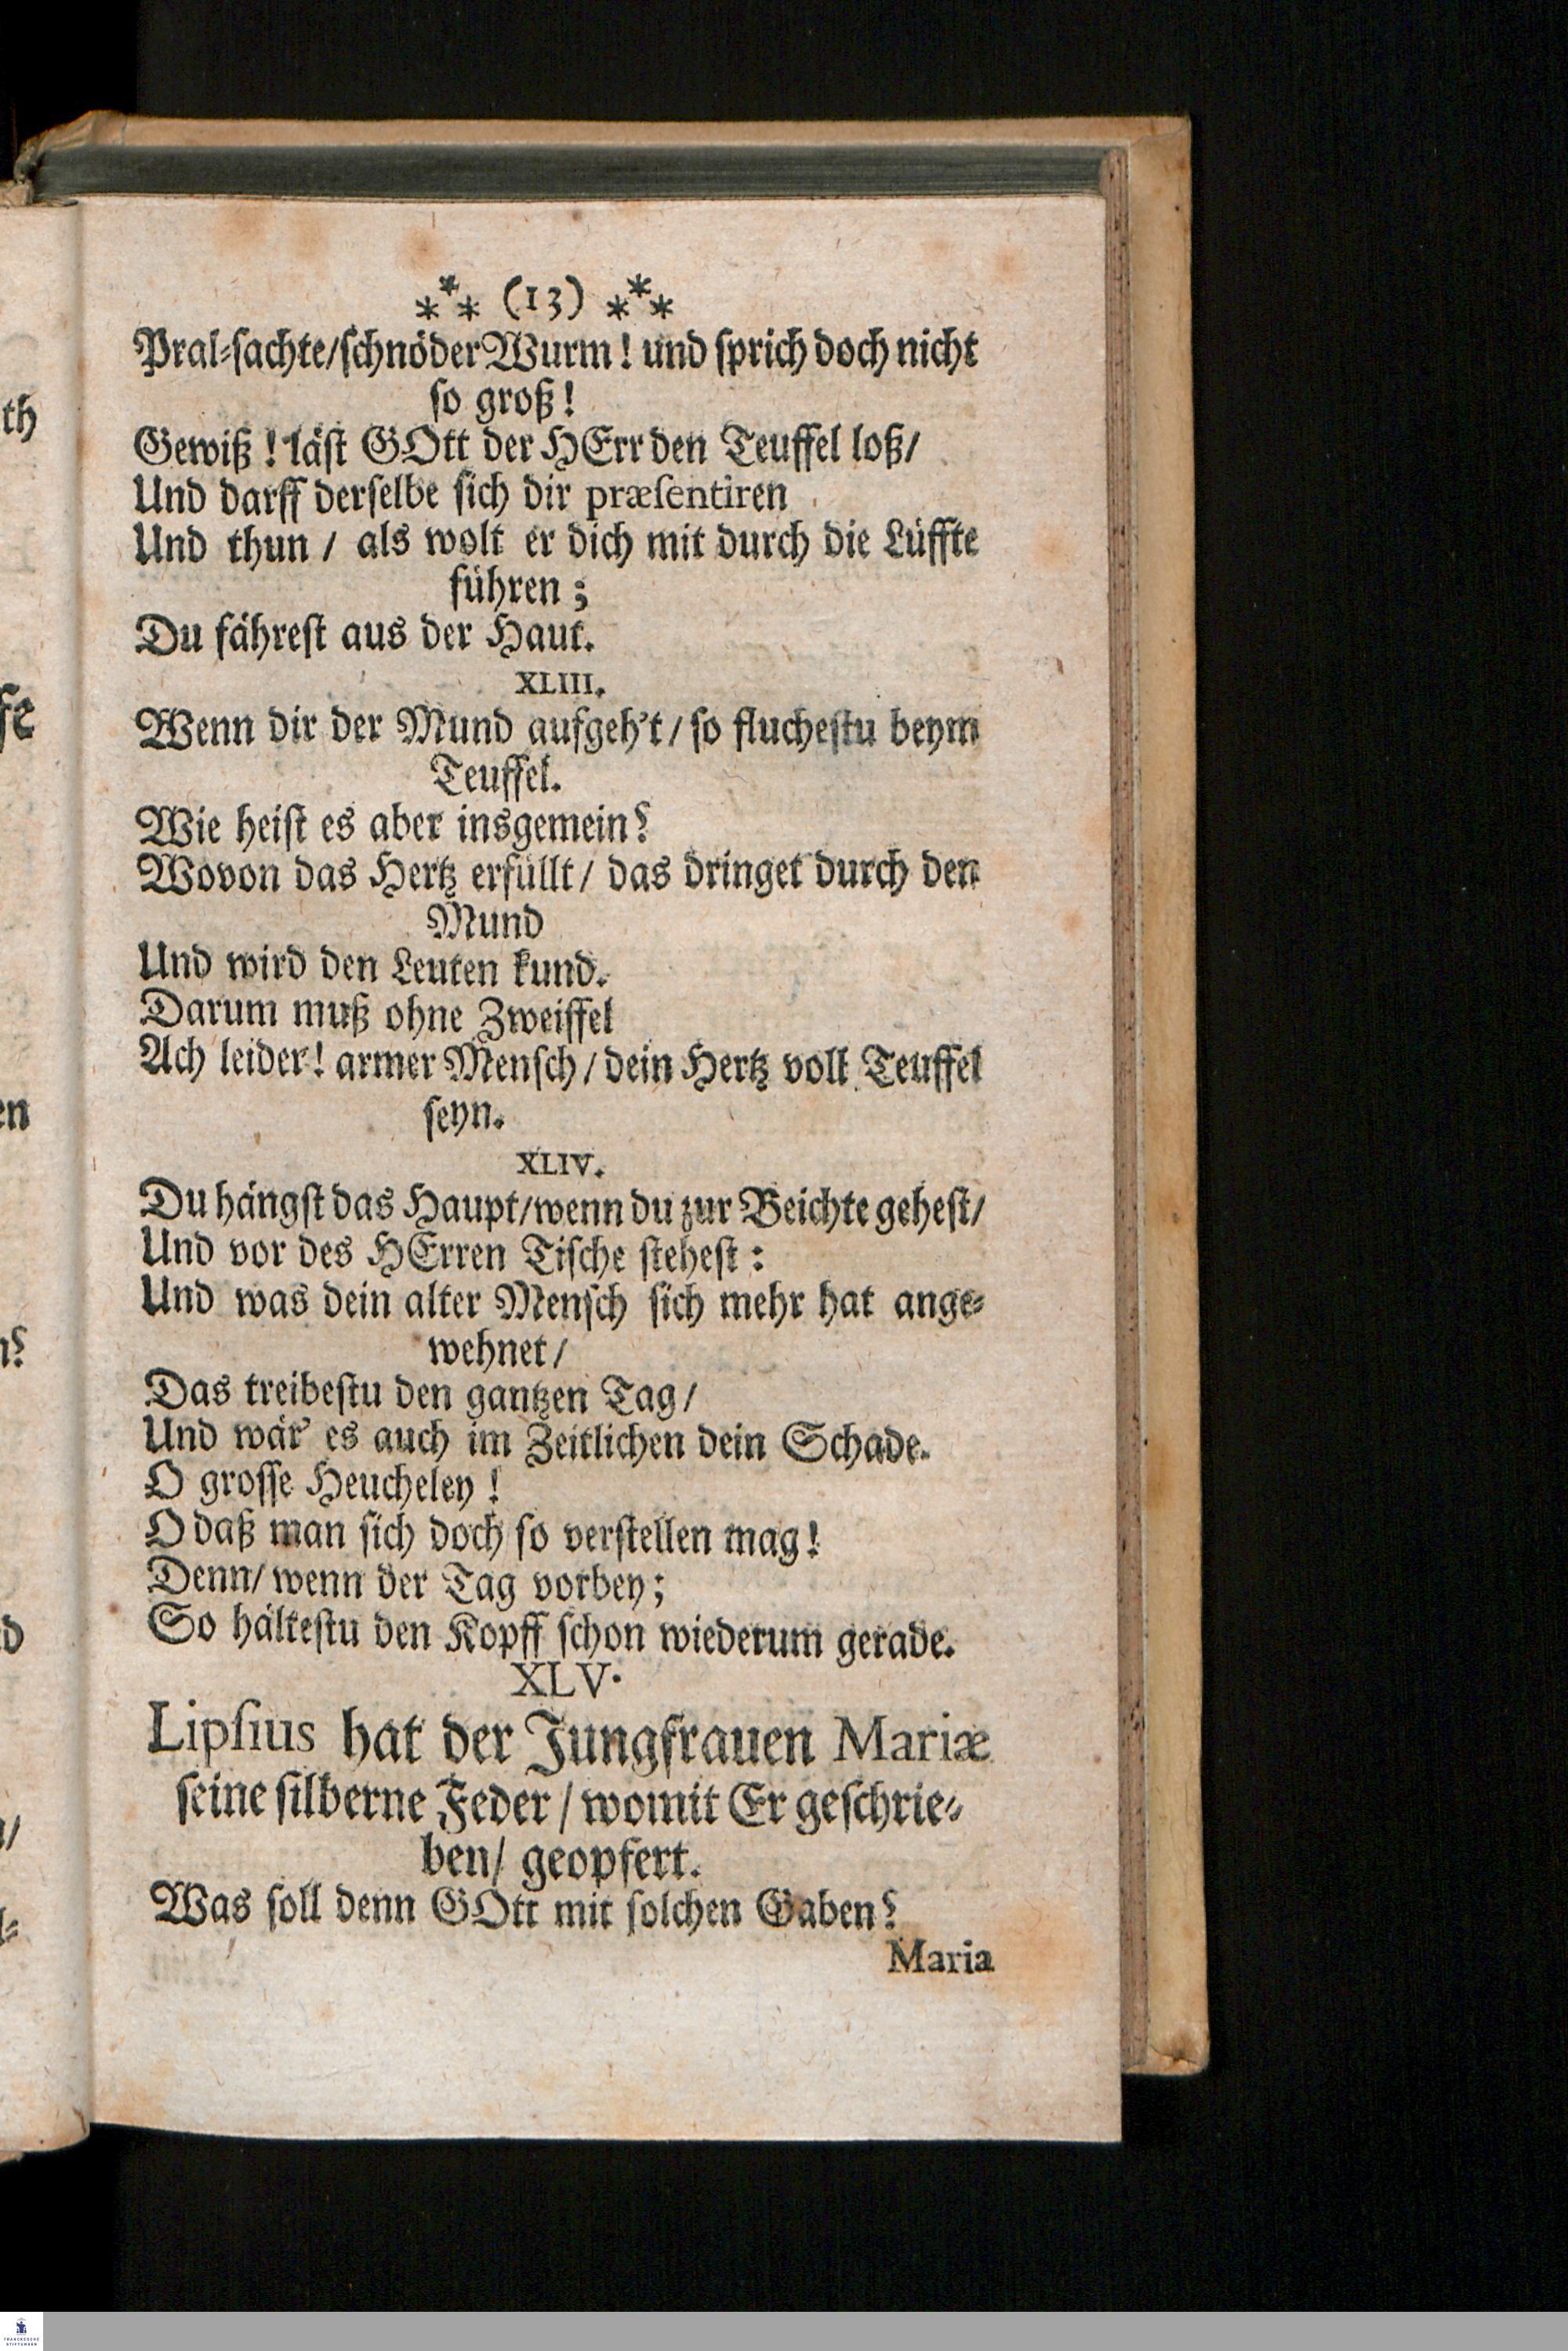 *** (13) ***
Pral-sachte/schnöder Wurm! und sprich doch nicht
so groß!
Gewiß! läst GOtt der HErr den Teuffel loß/
Und darff derselbe sich dir præsentiren
Und thun / als wolt er dich mit durch die Lüffte
führen;
Du fährest aus der Haut.
XLIII.
Wenn dir der Mund aufgeh't/ so fluchestu beym
Teuffel.
Wie heist es aber insgemein?
Wovon das Hertz erfüllt/ das dringet durch den
Mund
Und wird den Leuten kund.
Darum muß ohne Zweiffel
Ach leider! armer Mensch/ dein Hertz voll Teuffel
seyn.
XLIV.
Du hängst das Haupt/wenn du zur Beichte gehest/
Und vor des HErren Tische stehest:
Und was dein alter Mensch sich mehr hat ange-
wehnet/
Das treibestu den gantzen Tag/
Und wär' es auch im Zeitlichen dein Schade.
O grosse Heucheley!
O daß man sich doch so verstellen mag!
Denn/ wenn der Tag vorbey;
So hältestu den Kopff schon wiederum gerade.
XLV.
Lipsius hat der Jungfrauen Mariæ
seine silberne Feder / womit Er geschrie-
ben/ geopfert.
Was soll denn GOtt mit solchen Gaben?
Maria
FRANCKESCHE
STIFTUNGEN